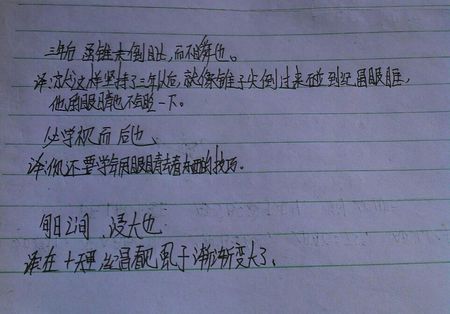 三年后 虽锥末倒眦,而不瞬也。
译:它们这样坚持了三年以后,就像锥子尖倒过来碰到纪昌眼眶,
他用眼睛也不会眨一下。
必学视而后也
译:你还要学有用眼睛去看东西的技巧。
旬日之间、浸大也
译在十天里,纪昌看见虱子渐渐变大了.